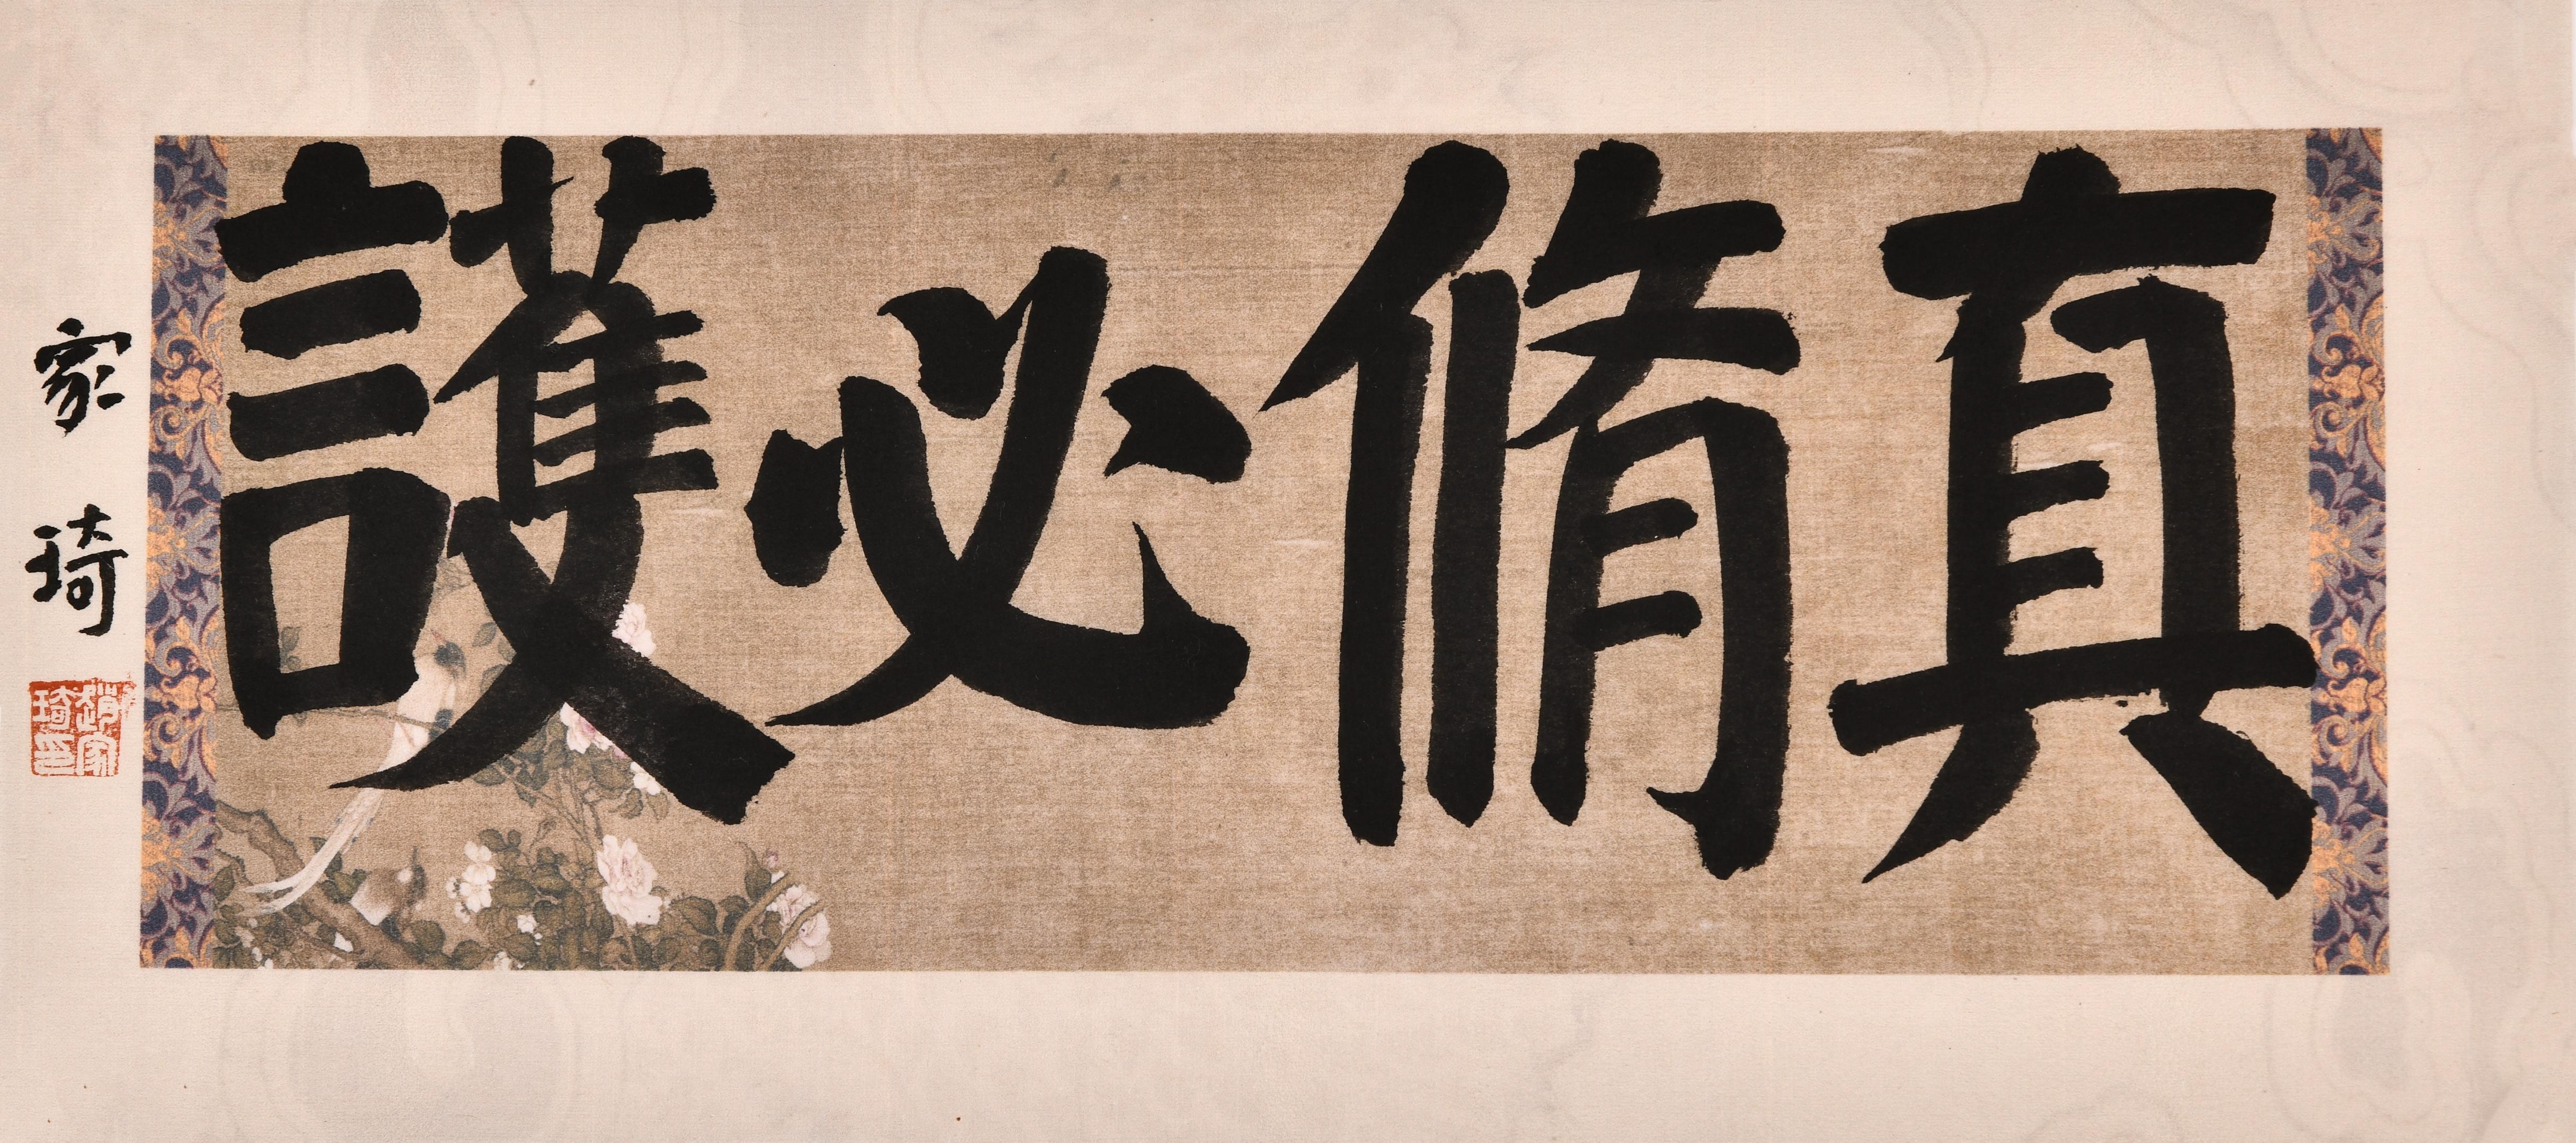 真脩必護
家琦
趙家琦印